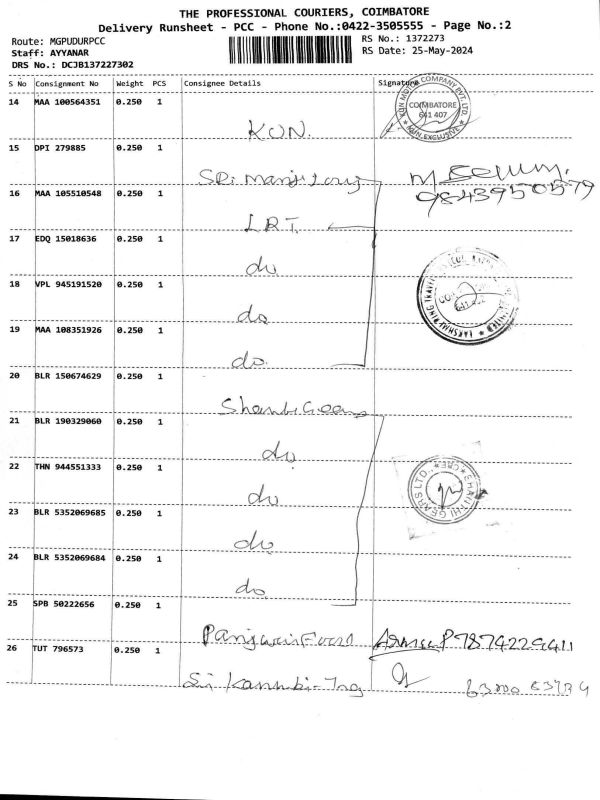 THE PROFESSIONAL COURIERS, COIMBATORE
Delivery Runsheet - PCC - Phone No.:0422-3505555 - Page No.:2
Route: MGPUDURPCC
RS No.: 1372273
Staff: AYYANAR
RS Date: 25-May-2024
DRS No.: DCJB137227302
S No Consignment No Weight PCS Consignee Details Signature
14 MAA 100564351 0.250 1
KUN.
COIMBATORE
641 407
KUN EXCLUSIVE
15 DPI 279885 0.250 1
9843950579
16 MAA 105510548 0.250 1
LRT
17 EDQ 15018636 0.250 1
do
18 VPL 945191520 0.250 1
do
19 MAA 108351926 0.250 1
do
20 BLR 150674629 0.250 1
21 BLR 190329060 0.250 1
do
22 THN 944551333 0.250 1
do
SHANTHI GEARS LTD.,
23 BLR 5352069685 0.250 1
do
24 BLR 5352069684 0.250 1
do
25 SPB 50222656 0.250 1
26 TUT 796573 0.250 1